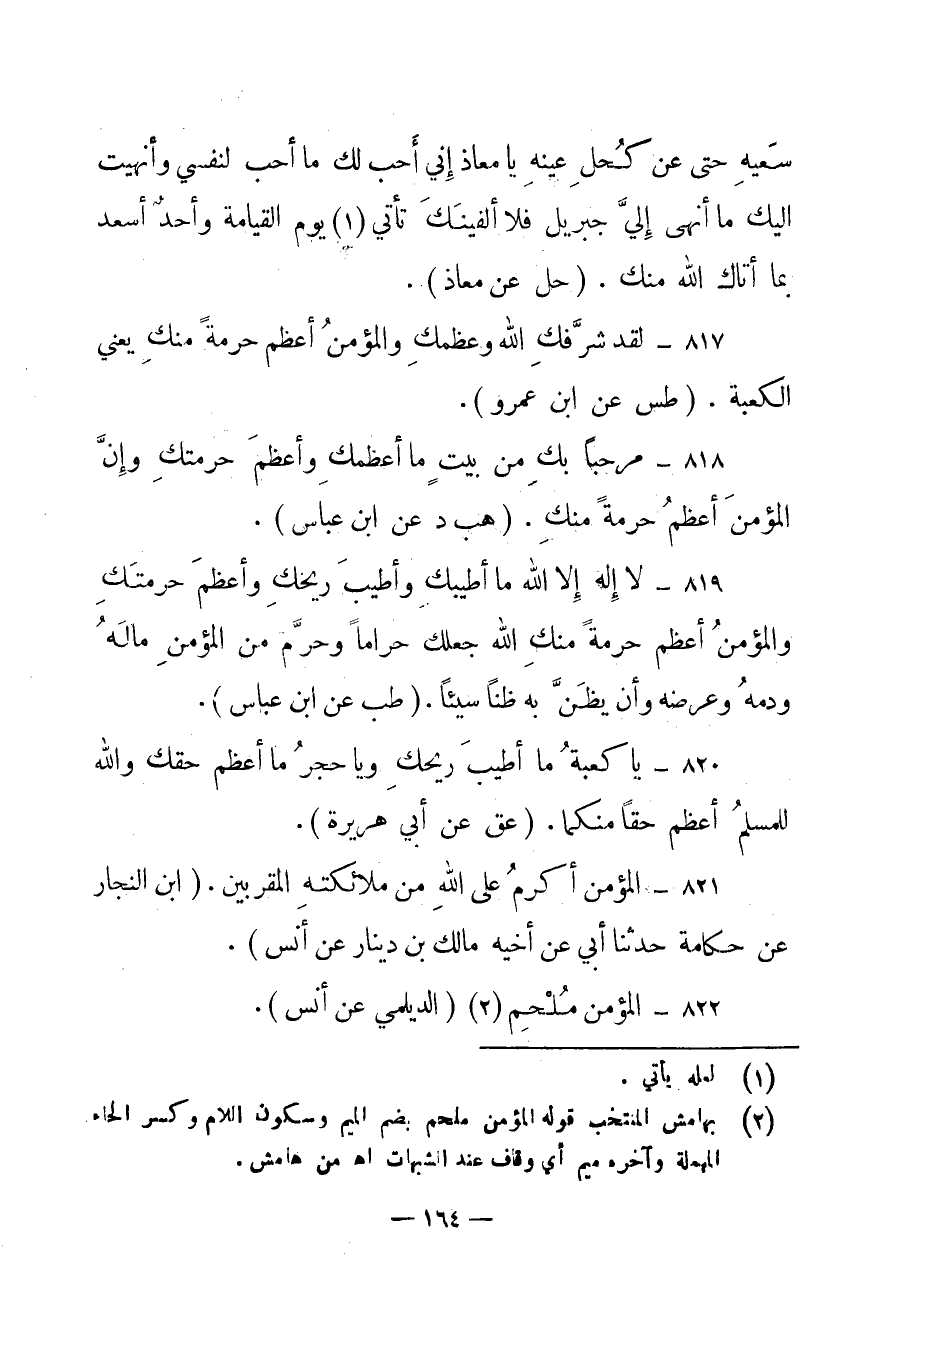 سَعيهِ حتى عن كُحلِ عينهِ يا معاذ إِني أَحب لك ما أحب لنفسي وأنهيت
اليك ما أنهى إِليَّ جبريل فلا ألفينكَ تأتي (١) يوم القيامة وأحدٌ أسعد
بما أتاك الله منك . ( حل عن معاذ ) .
٨١٧ - لقد شرَّفكِ الله وعظمكِ والمؤمنُ أعظم حرمةً منكِ يعني
الكعبة . ( طس عن ابن عمرو ) .
٨١٨ - مرحباً بكِ من بيتٍ ما أعظمكِ وأعظمَ حرمتكِ وإِنَّ
المؤمنَ أعظمُ حرمةً منكِ . ( هب د عن ابن عباس ) .
٨١٩ - لا إِله إِلا الله ما أطيبكِ وأطيبَ ريحكِ وأعظمَ حرمتَكِ
والمؤمنُ أعظم حرمةً منكِ الله جعلك حراماً وحرَّم من المؤمنِ مالَهُ
ودمهُ وعرضه وأن يظَنَّ به ظناً سيئاً . ( طب عن ابن عباس ) .
٨٢٠ - يا كعبةُ ما أطيبَ ريحكِ ويا حجرُ ما أعظم حقك والله
للمسلمُ أعظم حقاً منكما . ( عق عن أبي هريرة ) .
٨٢١ - المؤمن أكرمُ على اللهِ من ملائكتهِ المقربين . ( ابن النجار
عن حكامة حدثنا أبي عن أخيه مالك بن دينار عن أنس ) .
٨٢٢ - المؤمن مُلْحِم (٢) ( الديلمي عن أنس ) .
(١) لعله يأتي .
(٢) بهامش المنتخب قوله المؤمن ملحم بضم الميم وسكون اللام وكسر الحاء
المهملة وآخره ميم أي وقاف عند الشبهات اه من هامش .
— ١٦٤ —